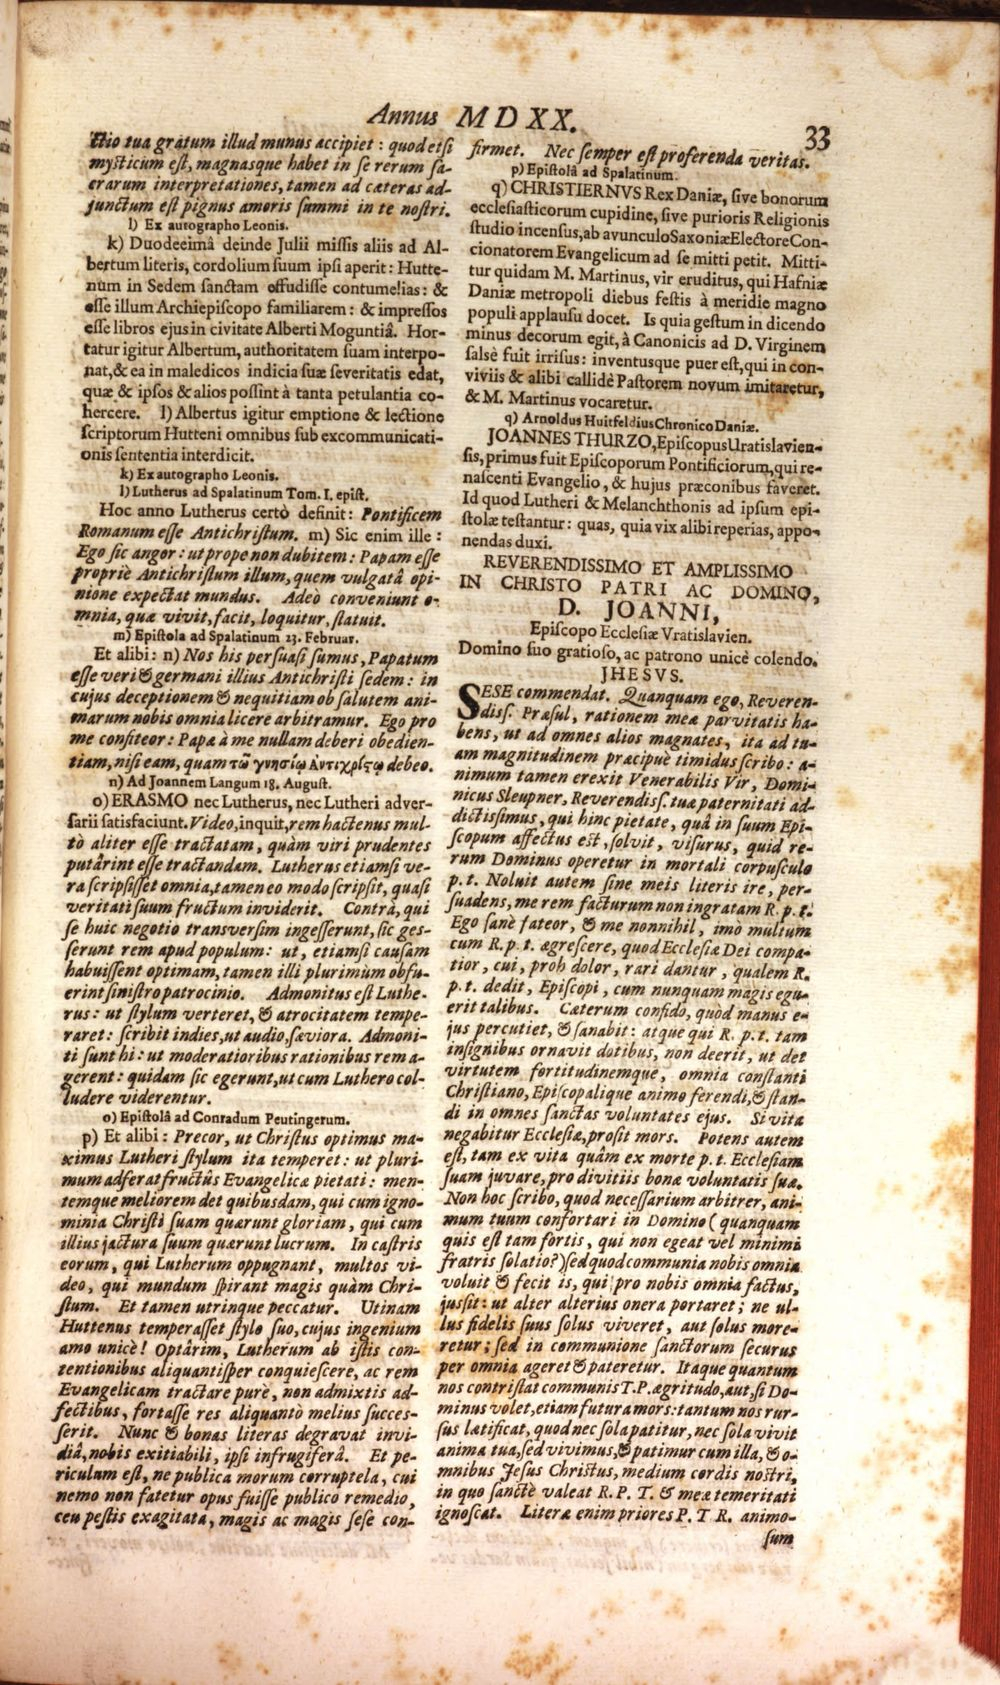 Annus MDXX. 33
ctio tua gratum illud munus accipiet : quod etsi
mysticum est, magnasque habet in se rerum sa-
crarum interpretationes, tamen ad cæteras ad-
junctum est pignus amoris summi in te nostri.
l) Ex autographo Leonis.
k) Duodecimâ deinde Julii missis aliis ad Al-
bertum literis, cordolium suum ipsi aperit: Hutte-
num in Sedem sanctam effudisse contumelias: &
esse illum Archiepiscopo familiarem: & impressos
esse libros ejus in civitate Alberti Moguntiâ. Hor-
tatur igitur Albertum, authoritatem suam interpo-
nat, & ea in maledicos indicia suæ severitatis edat,
quæ & ipsos & alios possint à tanta petulantia co-
hercere. l) Albertus igitur emptione & lectione
scriptorum Hutteni omnibus sub excommunicati-
onis sententia interdicit.
k) Ex autographo Leonis.
l) Lutherus ad Spalatinum Tom. I. epist.
Hoc anno Lutherus certò definit: Pontificem
Romanum esse Antichristum. m) Sic enim ille :
Ego sic angor: ut prope non dubitem: Papam esse
propriè Antichristum illum, quem vulgatâ opi-
nione expectat mundus. Adeò conveniunt o-
mnia, quæ vivit, facit, loquitur, statuit.
m) Epistola ad Spalatinum 23. Februar.
Et alibi: n) Nos hic persuasi sumus, Papatum
esse veri & germani illius Antichristi sedem: in
cujus deceptionem & nequitiam ob salutem ani-
marum nobis omnia licere arbitramur. Ego pro
me confiteor: Papæ à me nullam deberi obedien-
tiam, nisi eam, quam τῶ γνησίῳ Ἀντιχρίςῳ debeo.
n) Ad Joannem Langum 18. August.
o) ERASMO nec Lutherus, nec Lutheri adver-
sarii satisfaciunt. Video, inquit, rem hactenus mul-
tò aliter esse tractatam, quàm viri prudentes
putârint esse tractandam. Lutherus etiamsi ve-
ra scripsisset omnia, tamen eo modo scripsit, quasi
veritati suum fructum inviderit. Contrà, qui
se huic negotio transversim ingesserunt, sic ges-
serunt rem apud populum: ut, etiamsi causam
habuissent optimam, tamen illi plurimùm obfu-
erint sinistro patrocinio. Admonitus est Luthe-
rus: ut stylum verteret, & atrocitatem tempe-
raret: scribit indies, ut audio, sæviora. Admoni-
ti sunt hi: ut moderatioribus rationibus rem a-
gerent: quidam sic egerunt, ut cum Luthero col-
ludere viderentur.
o) Epistolâ ad Conradum Peutingerum.
p) Et alibi: Precor, ut Christus optimus ma-
ximus Lutheri stylum ita temperet: ut pluri-
mum adferat fructûs Evangelicæ pietati: men-
temque meliorem det quibusdam, qui cum igno-
minia Christi suam quærunt gloriam, qui cum
illius jactura suum quærunt lucrum. In castris
eorum, qui Lutherum oppugnant, multos vi-
deo, qui mundum spirant magis quàm Chri-
stum. Et tamen utrinque peccatur. Utinam
Huttenus temperasset stylo suo, cujus ingenium
amo unicè! Optârim, Lutherum ab istis con-
tentionibus aliquantisper conquiescere, ac rem
Evangelicam tractare purè, non admixtis ad-
fectibus, fortasse res aliquantò melius succes-
serit. Nunc & bonas literas degravat invi-
diâ, nobis exitiabili, ipsi infrugiferâ. Et pe-
riculum est, ne publica morum corruptela, cui
nemo non fatetur opus fuisse publico remedio,
ceu pestis exagitata, magis ac magis sese con-
firmet. Nec semper est proferenda veritas.
p) Epistolâ ad Spalatinum.
q) CHRISTIERNVS Rex Daniæ, sive bonorum
ecclesiasticorum cupidine, sive purioris Religionis
studio incensus, ab avunculo Saxoniæ Electore Con-
cionatorem Evangelicum ad se mitti petit. Mitti-
tur quidam M. Martinus, vir eruditus, qui Hafniæ
Daniæ metropoli diebus festis à meridie magno
populi applausu docet. Is quia gestum in dicendo
minus decorum egit, à Canonicis ad D. Virginem
salsè fuit irrisus: inventusque puer est, qui in con-
viviis & alibi callidè Pastorem novum imitaretur,
& M. Martinus vocaretur.
q) Arnoldus Huitfeldius Chronico Daniæ.
JOANNES THURZO, Episcopus Uratislavien-
sis, primus fuit Episcoporum Pontificiorum, qui re-
nascenti Evangelio, & hujus præconibus faveret.
Id quod Lutheri & Melanchthonis ad ipsum epi-
stolæ testantur: quas, quia vix alibi reperias, appo-
nendas duxi.
REVERENDISSIMO ET AMPLISSIMO
IN CHRISTO PATRI AC DOMINO,
D. JOANNI,
Episcopo Ecclesiæ Vratislavien.
Domino suo gratioso, ac patrono unicè colendo.
JHESVS.
SESE commendat. Quanquam ego, Reveren-
diss. Præsul, rationem meæ parvitatis ha-
bens, ut ad omnes alios magnates, ita ad tu-
am magnitudinem præcipuè timidus scribo: a-
nimum tamen erexit Venerabilis Vir, Domi-
nicus Sleupner, Reverendiss. tuæ paternitati ad-
dictissimus, qui hinc pietate, quâ in suum Epi-
scopum affectus est, solvit, visurus, quid re-
rum Dominus operetur in mortali corpusculo
p. t. Noluit autem sine meis literis ire, per-
suadens, me rem facturum non ingratam R. p. t.
Ego sanè fateor, & me nonnihil, imò multum
cum R. p. t. ægrescere, quod Ecclesiæ Dei compa-
tior, cui, proh dolor, rari dantur, qualem R.
p. t. dedit, Episcopi, cum nunquam magis egu-
erit talibus. Cæterum confido, quòd manus e-
jus percutiet, & sanabit: atque qui R. p. t. tam
insignibus ornavit dotibus, non deerit, ut det
virtutem fortitudinemque, omnia constanti
Christiano, Episcopalique animo ferendi, & stan-
di in omnes sanctas voluntates ejus. Si vita
negabitur Ecclesiæ, prosit mors. Potens autem
est, tam ex vita quàm ex morte p. t. Ecclesiam
suam juvare, pro divitiis bonæ voluntatis suæ.
Non hoc scribo, quod necessarium arbitrer, ani-
mum tuum confortari in Domino (quanquam
quis est tam fortis, qui non egeat vel minimi
fratris solatio?) sed quod communia nobis omnia
voluit & fecit is, qui pro nobis omnia factus,
jussit: ut alter alterius onera portaret; ne ul-
lus fidelis suus solus viveret, aut solus more-
retur; sed in communione sanctorum securus
per omnia ageret & pateretur. Itaque quantum
nos contristat communis T. P. ægritudo, aut, si Do-
minus volet, etiam futura mors: tantum nos rur-
sus lætificat, quod nec sola patitur, nec sola vivit
anima tua, sed vivimus, & patimur cum illa, & o-
mnibus Jesus Christus, medium cordis nostri,
in quo sanctè valeat R. P. T. & meæ temeritati
ignoscat. Literæ enim priores P. T R. animo-
sum